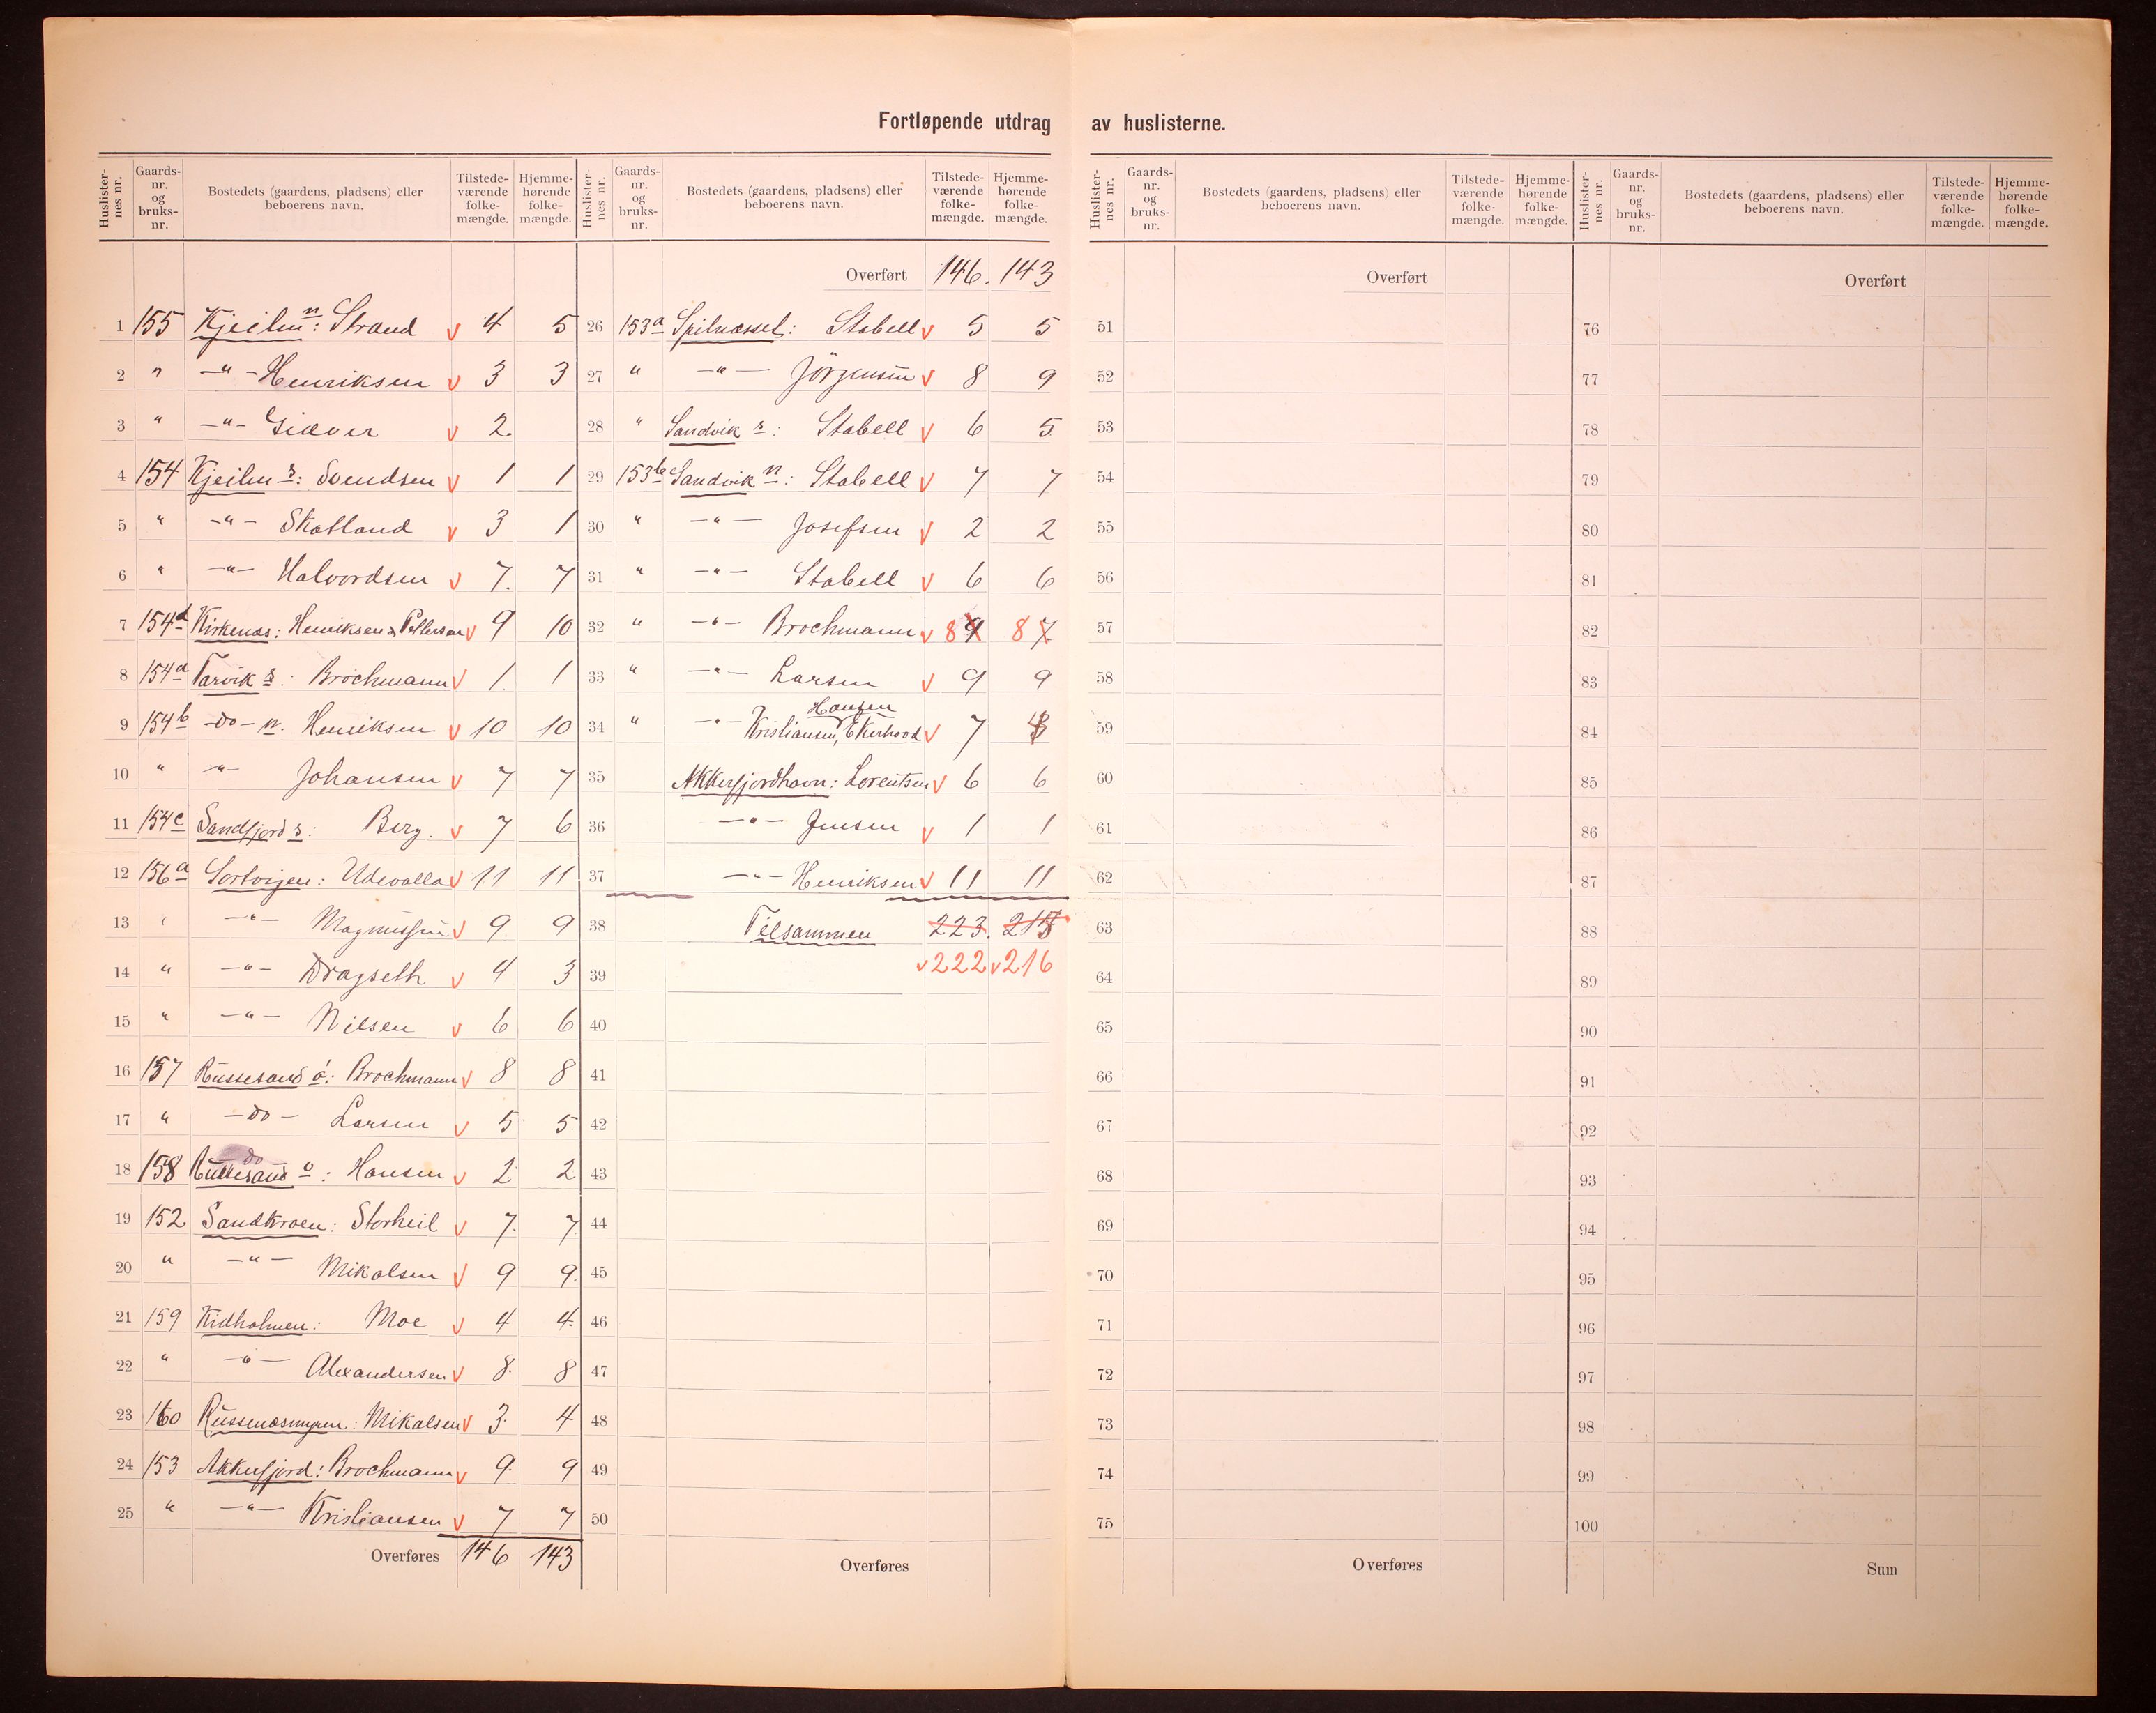 Fortløpende utdrag av huslisterne.
Huslister-nes nr. Gaards-nr. og bruks-nr. Bostedets (gaardens, pladsens) eller beboerens navn. Tilstede-værende folke-mængde. Hjemme-hørende folke-mængde.
1 155 Kjeilen n: Strand v 4 5
2 " -"- Henriksen v 3 3
3 " -"- Giæver v 2.
4 154 Kjeilen s: Svendsen v 1 1
5 " -"- Skotland v 3 1
6 " -"- Halvordsen v 7. 7
7 154d Kirkenæs: Henriksen & Pettersen v 9 10
8 154a Tarvik s: Brochmann v 1. 1
9 154b -do- n. Henriksen v 10 10
10 " -"- Johansen v 7 7
11 154c Sandfjord s: Berg. v 7 6
12 156a Sortvigen: Udevalla v 11 11
13 " -"- Magnussen v 9. 9
14 " -"- Dragseth v 4 3
15 " -"- Nilsen v 6 6
16 157 Russesand ø: Brochmann v 8 8
17 " -do- Larsen v 5 5.
18 158 do Russesand o: Hansen v 2 2
19 152 Sandkroen: Storheil v 7. 7
20 " -"- Mikalsen v 9 9.
21 159 Kidholmen: Moe v 4 4.
22 " -"- Alexandersen v 8. 8
23 160 Russenæsmyren: Mikalsen v 3. 4
24 153 Akkerfjord: Brochmann v 9. 9
25 " -"- Kristiansen v 7 7
Overføres 146 143
Huslister-nes nr. Gaards-nr. og bruks-nr. Bostedets (gaardens, pladsens) eller beboerens navn. Tilstede-værende folke-mængde. Hjemme-hørende folke-mængde.
Overført 146. 143
26 153a Spilnæsset: Stabell v 5 5
27 " -"- Jörgensen v 8 9
28 " Sandvik s: Stabell v 6 5
29 153b Sandvik n: Stabell v 7 7
30 " -"- Josefsen v 2 2
31 " -"- Stabell v 6 6
32 " -"- Brochmann v 8 9 8 7
33 " -"- Larsen v 9 9
Hansen
34 " -"- Kristiansen, Ekerhovd v 7
35 Akkerfjordhavn: Lorentsen v 6 6
36 -"- Jensen v 1 1
37 -"- Henriksen v 11 11
38 Tilsammen 223. 215
39 v 222 v 216
40
41
42
43
44
45
46
47
48
49
50
Overføres
Huslister-nes nr. Gaards-nr. og bruks-nr. Bostedets (gaardens, pladsens) eller beboerens navn. Tilstede-værende folke-mængde. Hjemme-hørende folke-mængde.
Overført
51
52
53
54
55
56
57
58
59
60
61
62
63
64
65
66
67
68
69
70
71
72
73
74
75
Overføres
Huslister-nes nr. Gaards-nr. og bruks-nr. Bostedets (gaardens, pladsens) eller beboerens navn. Tilstede-værende folke-mængde. Hjemme-hørende folke-mængde.
Overført
76
77
78
79
80
81
82
83
84
85
86
87
88
89
90
91
92
93
94
95
96
97
98
99
100
Sum